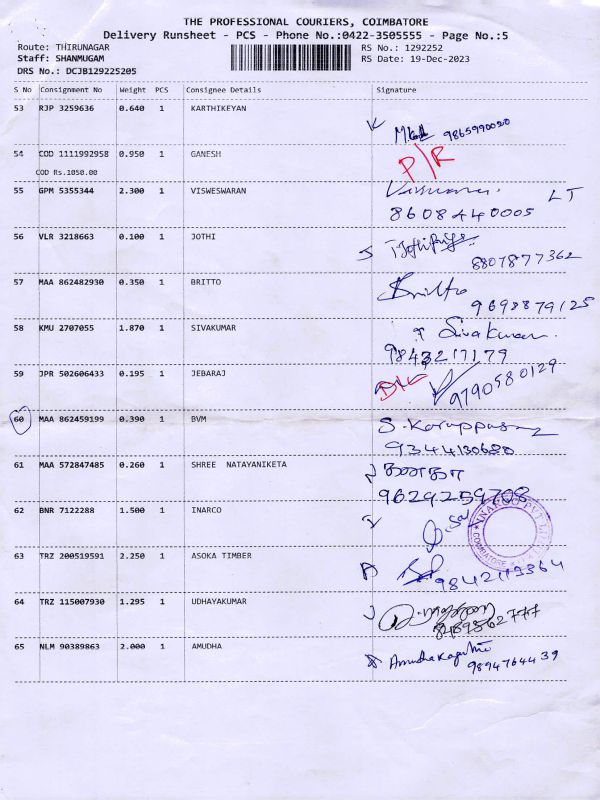 THE PROFESSIONAL COURIERS, COIMBATORE
Delivery Runsheet - PCS - Phone No.:0422-3505555 - Page No.:5
Route: THIRUNAGAR RS No.: 1292252
Staff: SHANMUGAM RS Date: 19-Dec-2023
DRS No.: DCJB129225205
S No Consignment No Weight PCS Consignee Details Signature
53 RJP 3259636 0.640 1 KARTHIKEYAN
9865990020
54 COD 1111992958 0.950 1 GANESH P/R
COD Rs.1050.00
55 GPM 5355344 2.300 1 VISWESWARAN LT
8608440005
56 VLR 3218663 0.100 1 JOTHI
8807877362
57 MAA 862482930 0.350 1 BRITTO Britto
9698879125
58 KMU 2707055 1.870 1 SIVAKUMAR Sivakumar
9843217179
59 JPR 502606433 0.195 1 JEBARAJ D/L 9790580129
60 MAA 862459199 0.390 1 BVM S. Karuppasamy
9344130680
61 MAA 572847485 0.260 1 SHREE NATAYANIKETA
9629259708
62 BNR 7122288 1.500 1 INARCO
INARCO PVT LTD COIMBATORE
63 TRZ 200519591 2.250 1 ASOKA TIMBER
64 TRZ 115007930 1.295 1 UDHAYAKUMAR
65 NLM 90389863 2.000 1 AMUDHA
9894764439